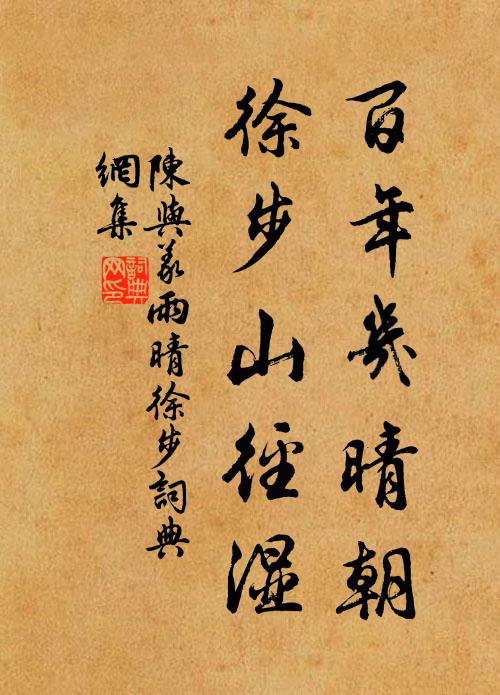 百年幾晴朝
徐步山徑濕
陳與義雨晴徐步詞典
網集
詞典
网印